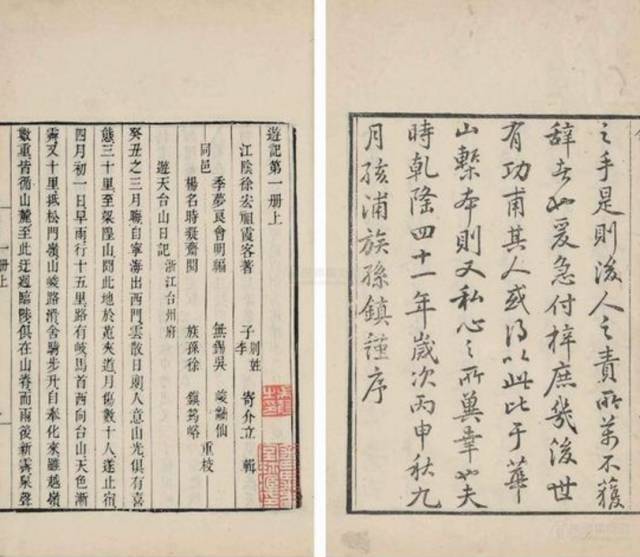 之手是則後人之責所萬不獲
辭者也爰急付梓庶幾後世
有功甫其人或得以此比于華
山槧本則又私心之所冀幸也夫
時乾隆四十一年歲次丙申秋九
月孩浦族孫鎮謹序
遊記第一册上
江陰徐宏祖霞客著 子李別姓寄介立 輯
季夢良會明編 無錫吳峻仙
同邑 重校
楊名時凝齋閱 族孫徐鎮筠峪
遊天台山日記 浙江台州府
癸丑之三月晦自寧海出西門雲散日朗人意山光俱有喜
態三十里至梁隍山聞此地於菟夾道月傷數十人遂止宿
四月初一日早雨行十五里路有岐馬首西向台山天色漸
霽又十里抵松門嶺山峻路滑舍騎步升自奉化來雖越嶺
數重皆循山麓至此迂迴臨陟俱在山脊而雨後新霽泉聲
一册上